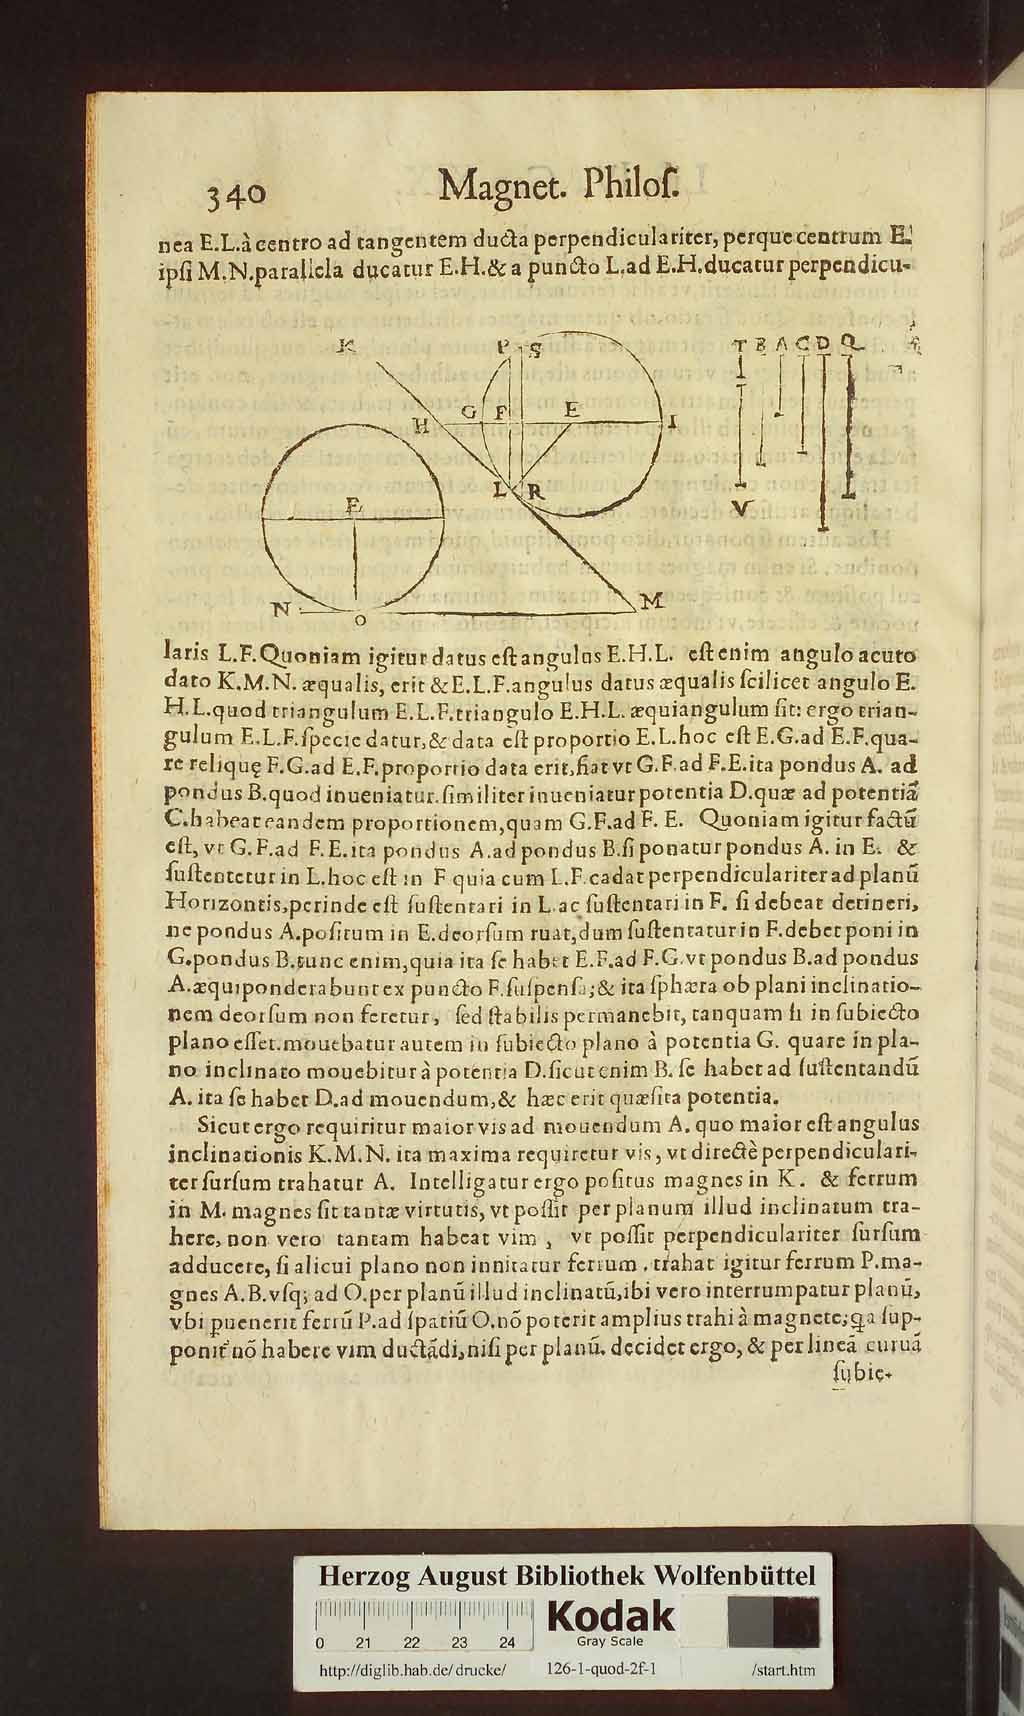 340 Magnet. Philoſ.
nea E.L.à centro ad tangentem ducta perpendiculariter, perque centrum E.
ipſi M.N.parallela ducatur E.H.& a puncto L.ad E.H.ducatur perpendicu-
K P S T B A C D Q
G F E
H I
L R
E V
N M
O
laris L.F.Quoniam igitur datus eſt angulus E.H.L. eſt enim angulo acuto
dato K.M.N. æqualis, erit & E.L.F.angulus datus æqualis ſcilicet angulo E.
H.L.quod triangulum E.L.F.triangulo E.H.L. æquiangulum ſit: ergo trian-
gulum E.L.F.ſpecie datur,& data eſt proportio E.L.hoc eſt E.G.ad E.F.qua-
re reliquę F.G.ad E.F.proportio data erit,fiat vt G.F.ad F.E.ita pondus A. ad
pondus B.quod inueniatur.ſimiliter inueniatur potentia D.quæ ad potentiã
C.habeat eandem proportionem,quam G.F.ad F. E. Quoniam igitur factũ
eſt, vt G.F.ad F.E.ita pondus A.ad pondus B.ſi ponatur pondus A. in E. &
ſuſtentetur in L.hoc eſt in F quia cum L.F.cadat perpendiculariter ad planũ
Horizontis,perinde eſt ſuſtentari in L.ac ſuſtentari in F. ſi debeat detineri,
ne pondus A.poſitum in E.deorſum ruat,dum ſuſtentatur in F.debet poni in
G.pondus B.tunc enim,quia ita ſe habet E.F.ad F.G.vt pondus B.ad pondus
A.æquiponderabunt ex puncto F.ſuſpenſa;& ita ſphæra ob plani inclinatio-
nem deorſum non feretur, ſed ſtabilis permanebit, tanquam ſi in ſubiecto
plano eſſet.mouebatur autem in ſubiecto plano à potentia G. quare in pla-
no inclinato mouebitur à potentia D.ſicut enim B. ſe habet ad ſuſtentandũ
A. ita ſe habet D.ad mouendum,& hæc erit quæſita potentia.
Sicut ergo requiritur maior vis ad mouendum A. quo maior eſt angulus
inclinationis K.M.N. ita maxima requiretur vis, vt directè perpendiculari-
ter ſurſum trahatur A. Intelligatur ergo poſitus magnes in K. & ferrum
in M. magnes ſit tantæ virtutis, vt poſſit per planum illud inclinatum tra-
here, non vero tantam habeat vim, vt poſſit perpendiculariter ſurſum
adducere, ſi alicui plano non innitatur ferrum. trahat igitur ferrum P.ma-
gnes A.B.vſq; ad O.per planũ illud inclinatũ,ibi vero interrumpatur planũ,
vbi puenerit ferrũ P.ad ſpatiũ O.nõ poterit amplius trahi à magnete;qa ſup-
ponit nõ habere vim ductãdi,niſi per planũ. decidet ergo, & per lineã curuã
ſubie-
Herzog August Bibliothek Wolfenbüttel
Kodak
Gray Scale
0 21 22 23 24
http://diglib.hab.de/drucke/ 126-1-quod-2f-1 /start.htm